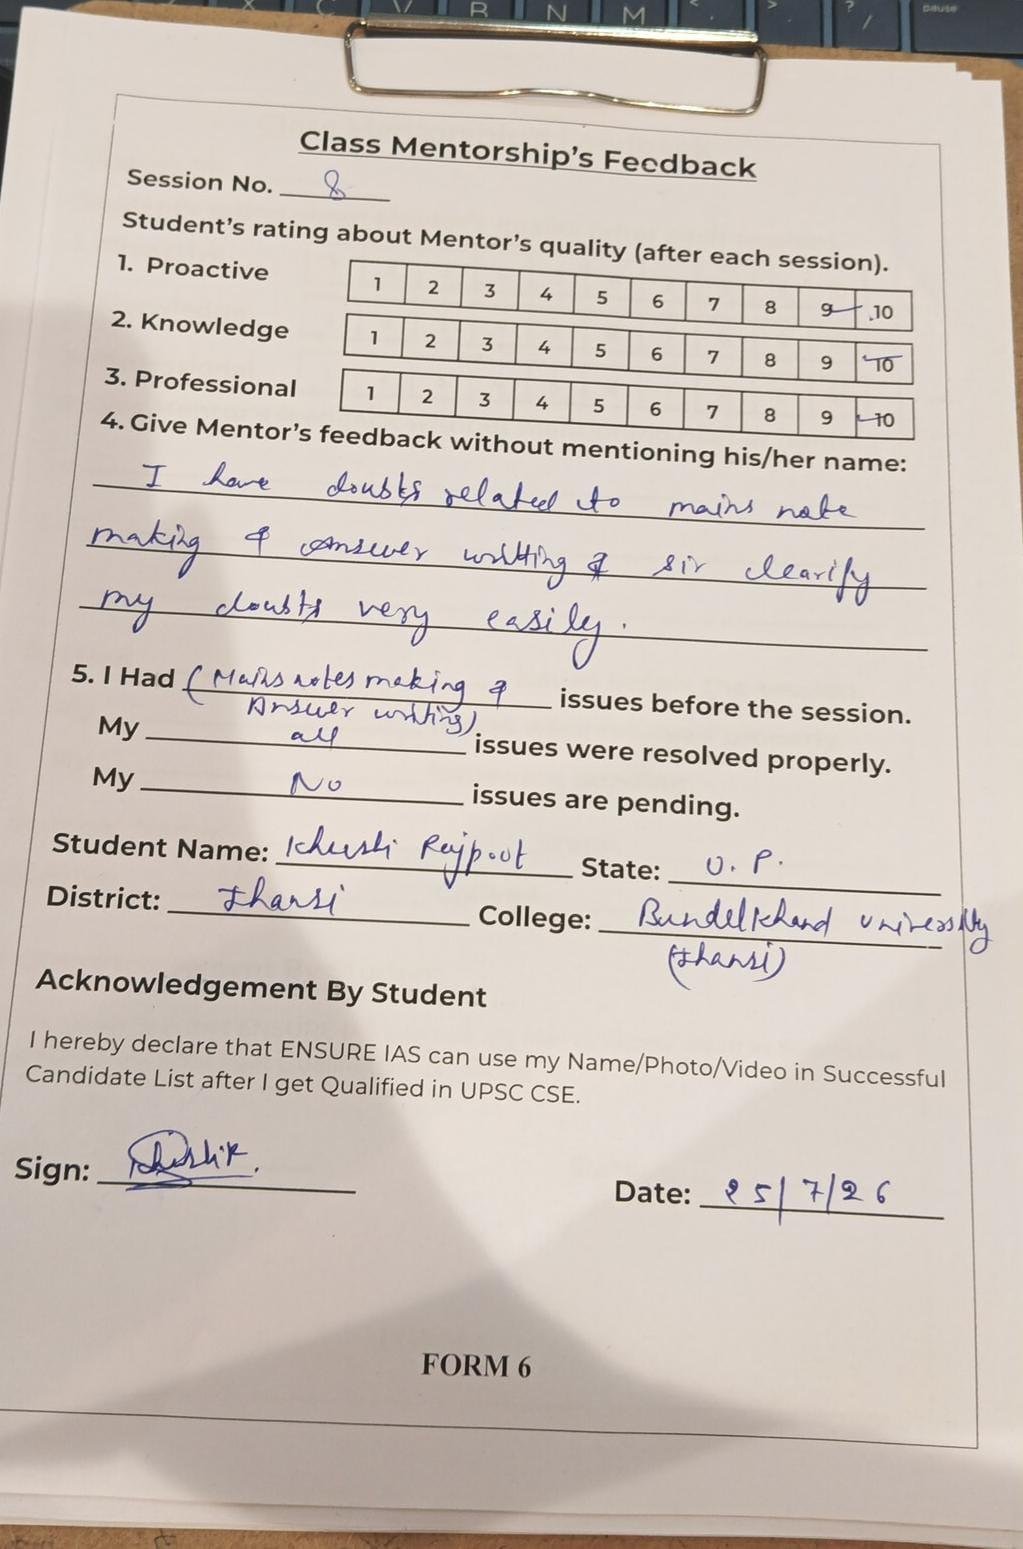 V B N M < > ? / pause
Class Mentorship's Feedback
Session No. 8
Student's rating about Mentor's quality (after each session).
1. Proactive 1 2 3 4 5 6 7 8 9 10
2. Knowledge 1 2 3 4 5 6 7 8 9 10
3. Professional 1 2 3 4 5 6 7 8 9 10
4. Give Mentor's feedback without mentioning his/her name:
I have doubts related to mains note
making & answer writting & sir clearify
my doubts very easily.
5. I Had (Mains notes making & issues before the session.
Answer writing)
My all issues were resolved properly.
My No issues are pending.
Student Name: Khushi Rajpoot State: U.P.
District: Jhansi College: Bundelkhand University
(Jhansi)
Acknowledgement By Student
I hereby declare that ENSURE IAS can use my Name/Photo/Video in Successful
Candidate List after I get Qualified in UPSC CSE.
Sign: Date: 25/7/26
FORM 6